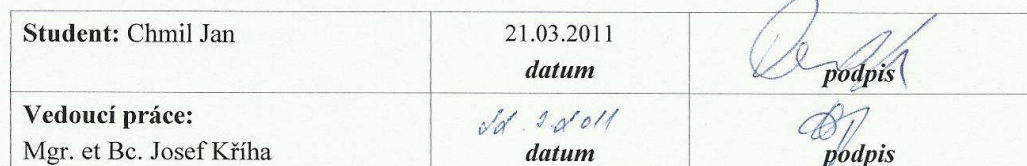 Student: Chmil Jan 21.03.2011
datum podpis
Vedoucí práce:
Mgr. et Bc. Josef Kříha datum podpis